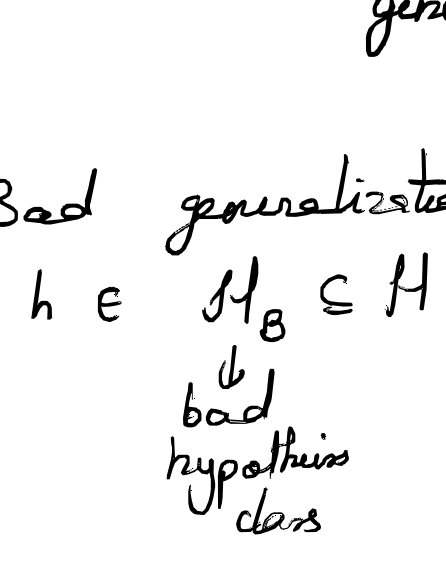 gene
Bad generalizatio
h ∈ H_B ⊆ H
↓
bad
hypothesis
class